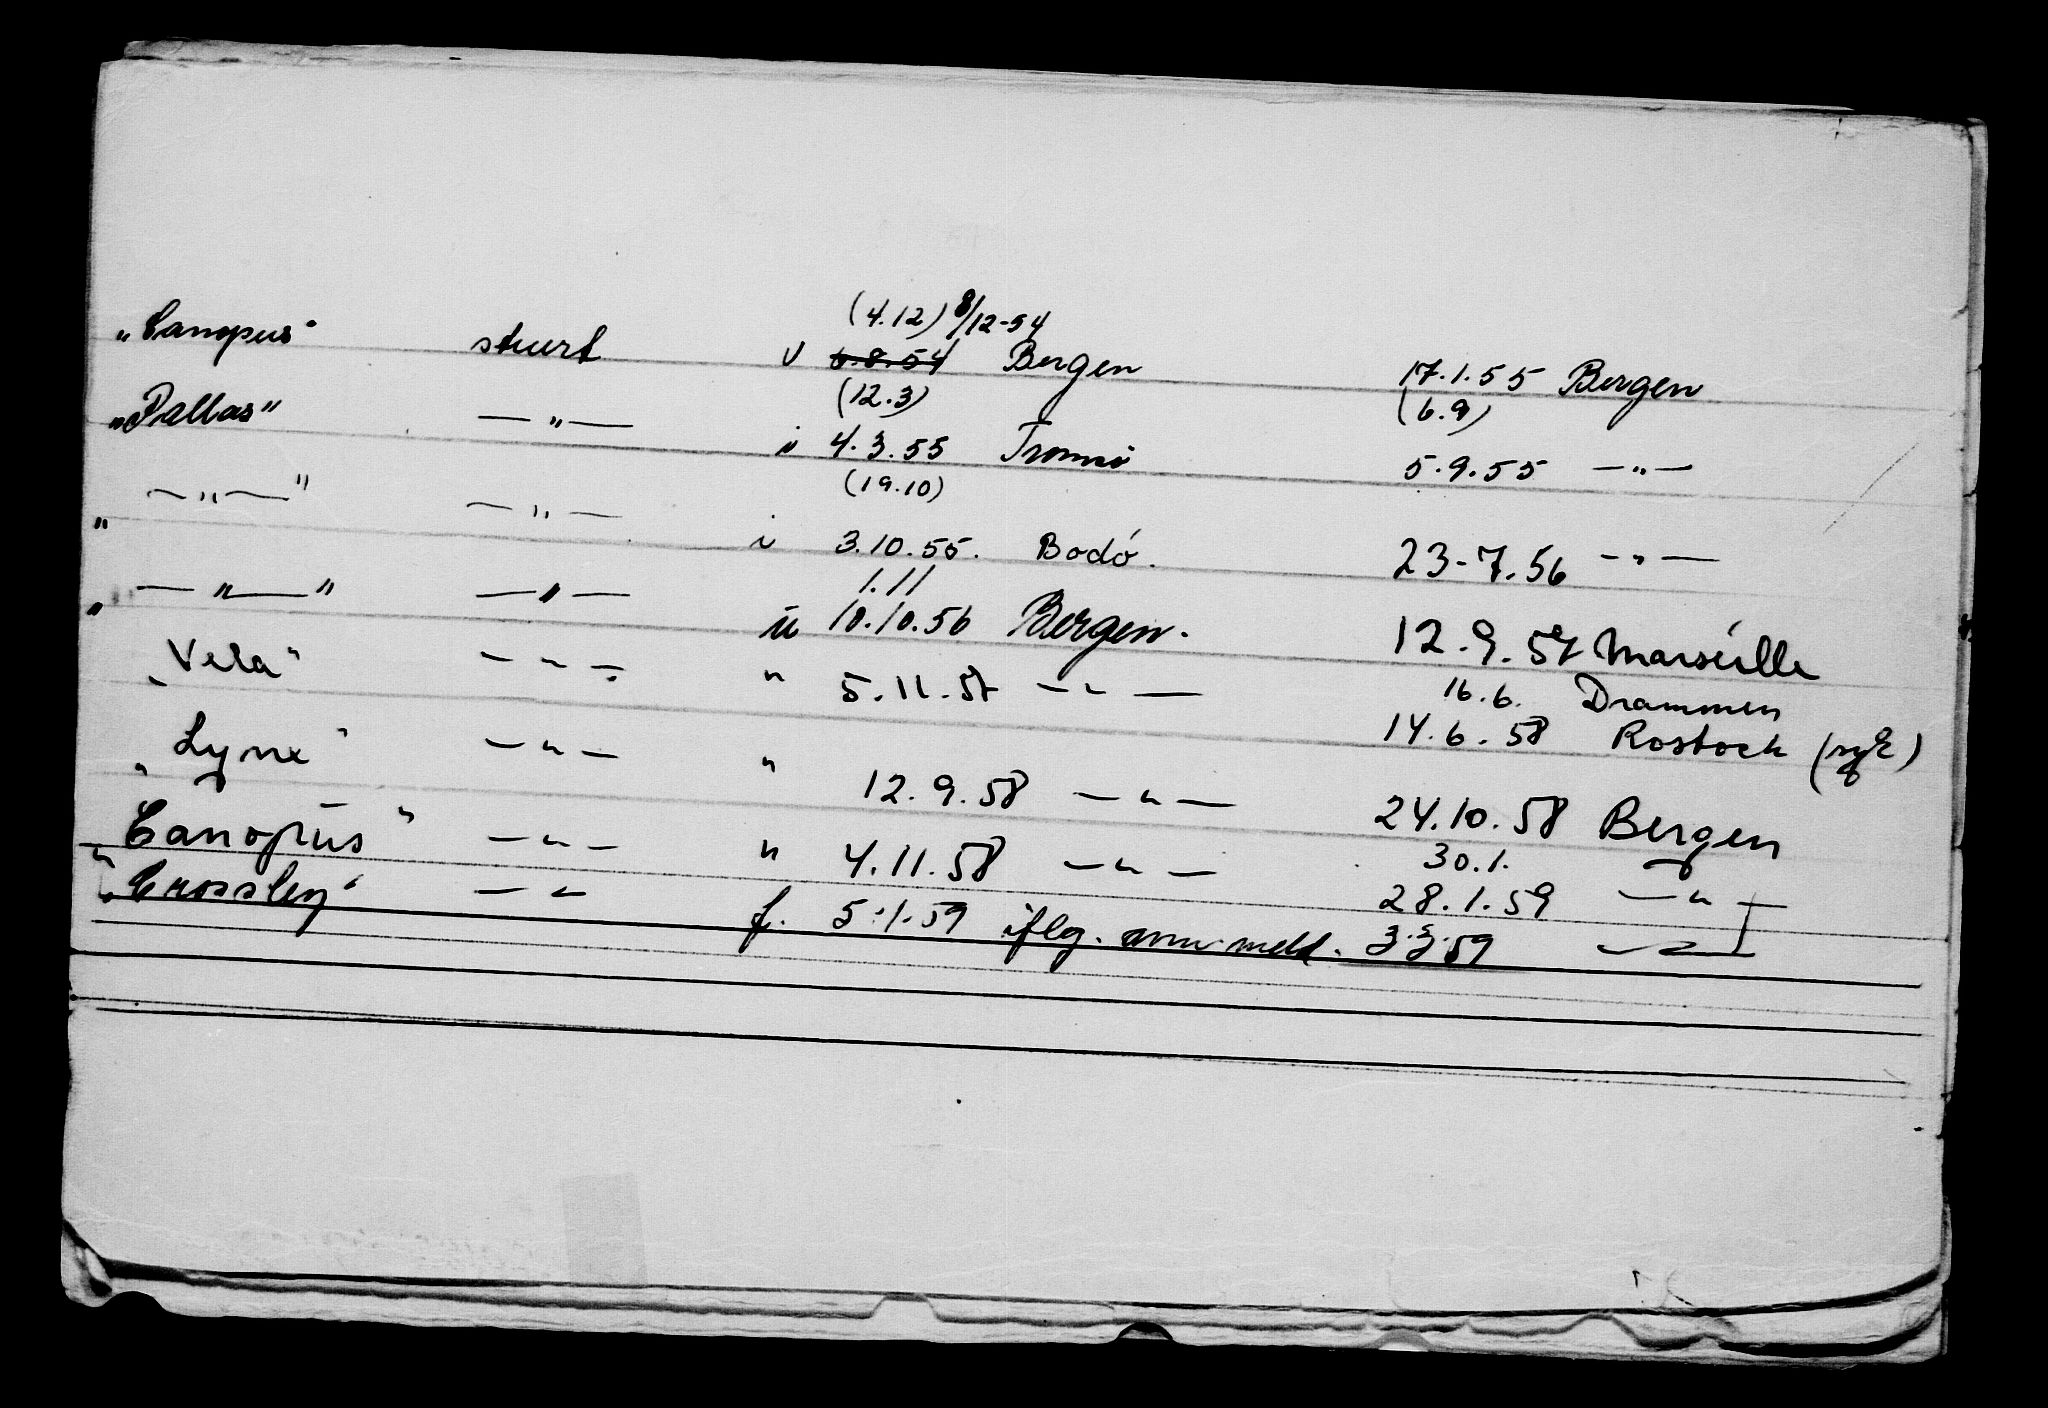 (4.12) 8/12-54
„Canopus" stuert v 6.8.54 Bergen 17.1.55 Bergen
(12.3) (6.9)
„Pallas" —„— i 4.3.55 Tromsö 5.9.55 —„—
(19.10)
„—„—" —„— i 3.10.55. Bodó. 23-7.56 —„—
1.11
„—„—" —„— u 10.10.56 Bergen. 12.9.57 Marseille
16.6. Drammen
„Vela" —„— " 5.11.57 —„— 14.6.58 Rostock (syk)
„Lynx" —„— " 12.9.58 —„— 24.10.58 Bergen
30.1.
„Canopus" —„— " 4.11.58 —„— 28.1.59 —„—
„Crossley" —„ f. 5.1.59 iflg. meld. 3.3.59 —„—